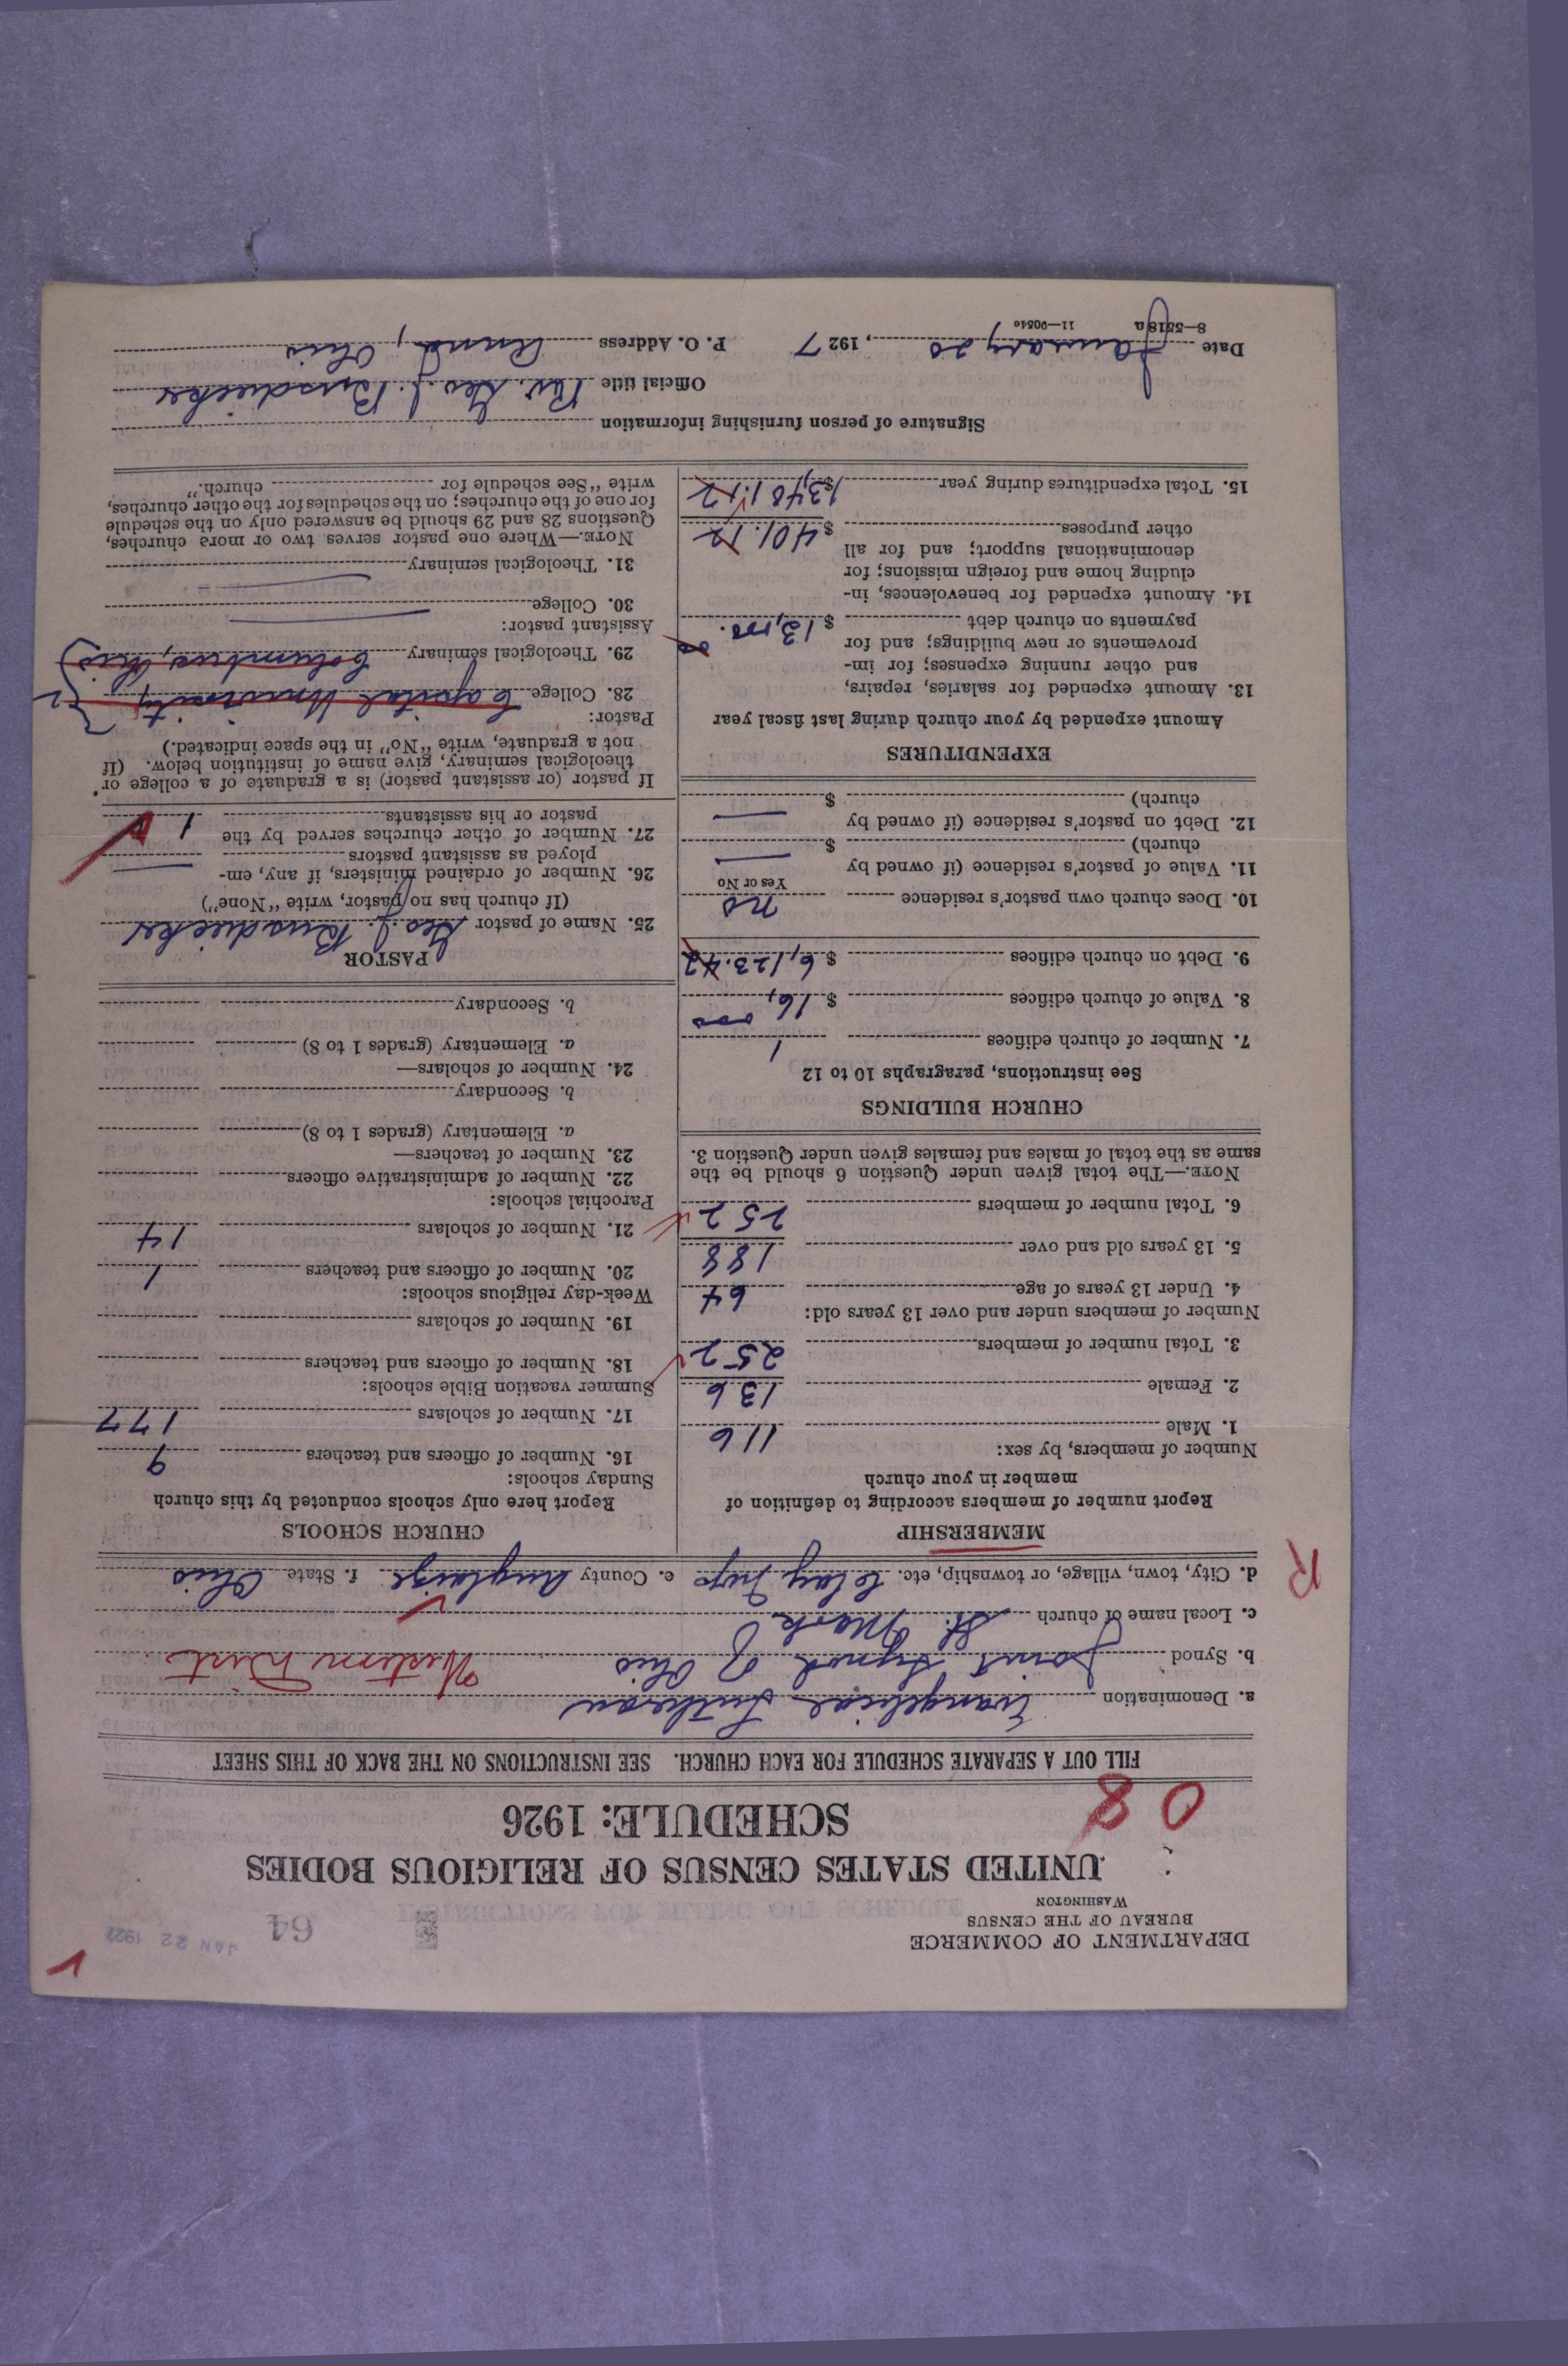 DEPARTMENT OF COMMERCE
BUREAU OF THE CENSUS
WASHINGTON
64
JAN 22 1927
UNITED STATES CENSUS OF RELIGIOUS BODIES
SCHEDULE: 1926
0 8
FILL OUT A SEPARATE SCHEDULE FOR EACH CHURCH. SEE INSTRUCTIONS ON THE BACK OF THIS SHEET
a. Denomination Evangelical Lutheran
b. Synod Joint Synod of Ohio Western Dist
c. Local name of church St. Mark
d. City, town, village, or township, etc. Clay Twp e. County Auglaize f. State Ohio
R
MEMBERSHIP
Report number of members according to definition of
member in your church
Number of members, by sex:
1. Male 116
2. Female 136
3. Total number of members 252
Number of members under and over 13 years old:
4. Under 13 years of age 64
5. 13 years old and over 188
6. Total number of members 252
NOTE.—The total given under Question 6 should be the
same as the total of males and females given under Question 3.
CHURCH BUILDINGS
See instructions, paragraphs 10 to 12
7. Number of church edifices 1
8. Value of church edifices $ 16,000
9. Debt on church edifices $ 6,123.42
10. Does church own pastor's residence no
Yes or No
11. Value of pastor's residence (if owned by
church) $ —
12. Debt on pastor's residence (if owned by
church) $ —
EXPENDITURES
Amount expended by your church during last fiscal year
13. Amount expended for salaries, repairs,
and other running expenses; for im-
provements or new buildings; and for
payments on church debt $
14. Amount expended for benevolences, in-
cluding home and foreign missions; for
denominational support; and for all
other purposes $ 401.12
15. Total expenditures during year $ 13,401.12
CHURCH SCHOOLS
Report here only schools conducted by this church
Sunday schools:
16. Number of officers and teachers 9
17. Number of scholars 177
Summer vacation Bible schools:
18. Number of officers and teachers
19. Number of scholars
Week-day religious schools:
20. Number of officers and teachers 1
21. Number of scholars 14
Parochial schools:
22. Number of administrative officers
23. Number of teachers—
a. Elementary (grades 1 to 8)
b. Secondary
24. Number of scholars—
a. Elementary (grades 1 to 8)
b. Secondary
PASTOR
25. Name of pastor Geo. J.
(If church has no pastor, write "None")
26. Number of ordained ministers, if any, em-
ployed as assistant pastors —
27. Number of other churches served by the
pastor or his assistants 1
If pastor (or assistant pastor) is a graduate of a college or
theological seminary, give name of institution below. (If
not a graduate, write "No" in the space indicated.)
Pastor:
28. College Capital University
29. Theological seminary Columbus, Ohio
Assistant pastor:
30. College —
31. Theological seminary —
NOTE.—Where one pastor serves two or more churches,
Questions 28 and 29 should be answered only on the schedule
for one of the churches; on the schedules for the other churches,
write "See schedule for church."
Signature of person furnishing information
Official title Rev. Geo. J.
Date January 20, 1927 P. O. Address Anna, Ohio
8—5518a 11—9054c